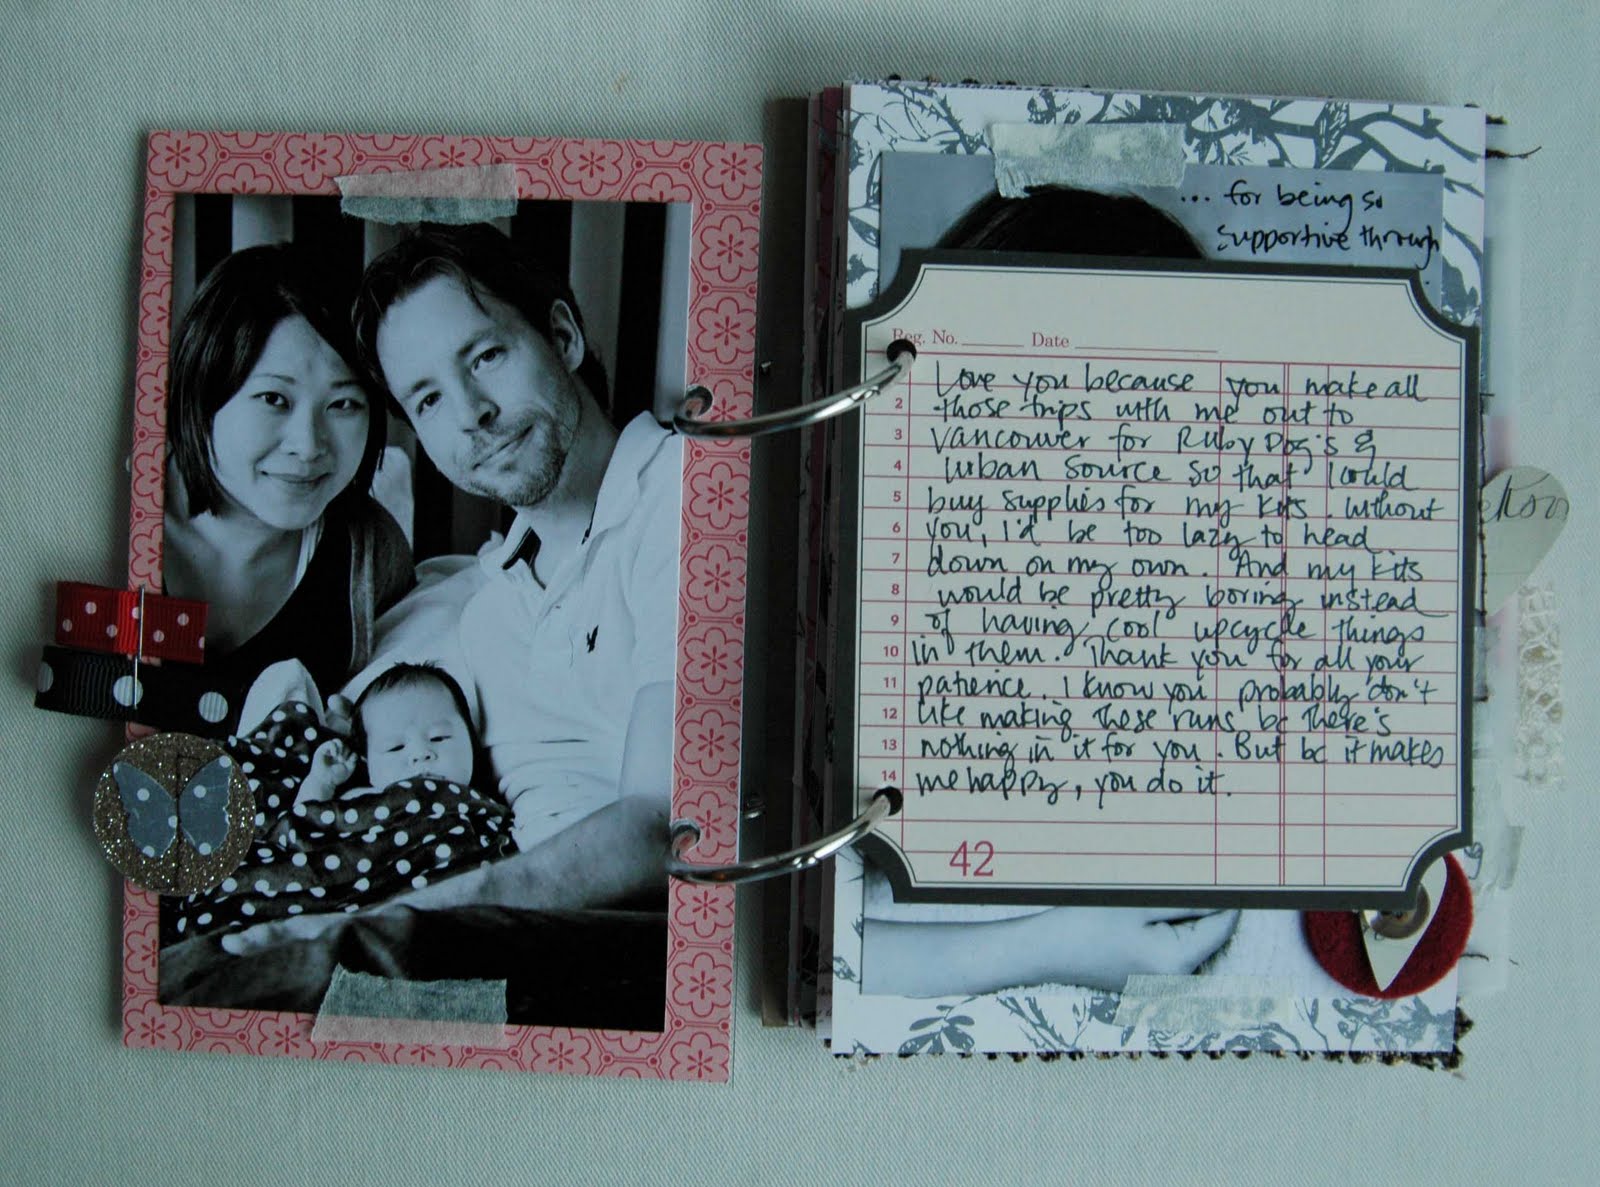 ... for being so
supportive through
Reg. No. Date
Love you because you make all
2 those trips with me out to
3 Vancouver for Ruby Dog's &
4 Urban Source so that I could
5 buy supplies for my kits. Without
6 you, I'd be too lazy to head
7 down on my own. And my kits
8 would be pretty boring instead
9 of having cool upcycle things
10 in them. Thank you for all your
11 patience. I know you probably don't
12 like making these runs bc there's
13 nothing in it for you. But bc it makes
14 me happy, you do it.
42